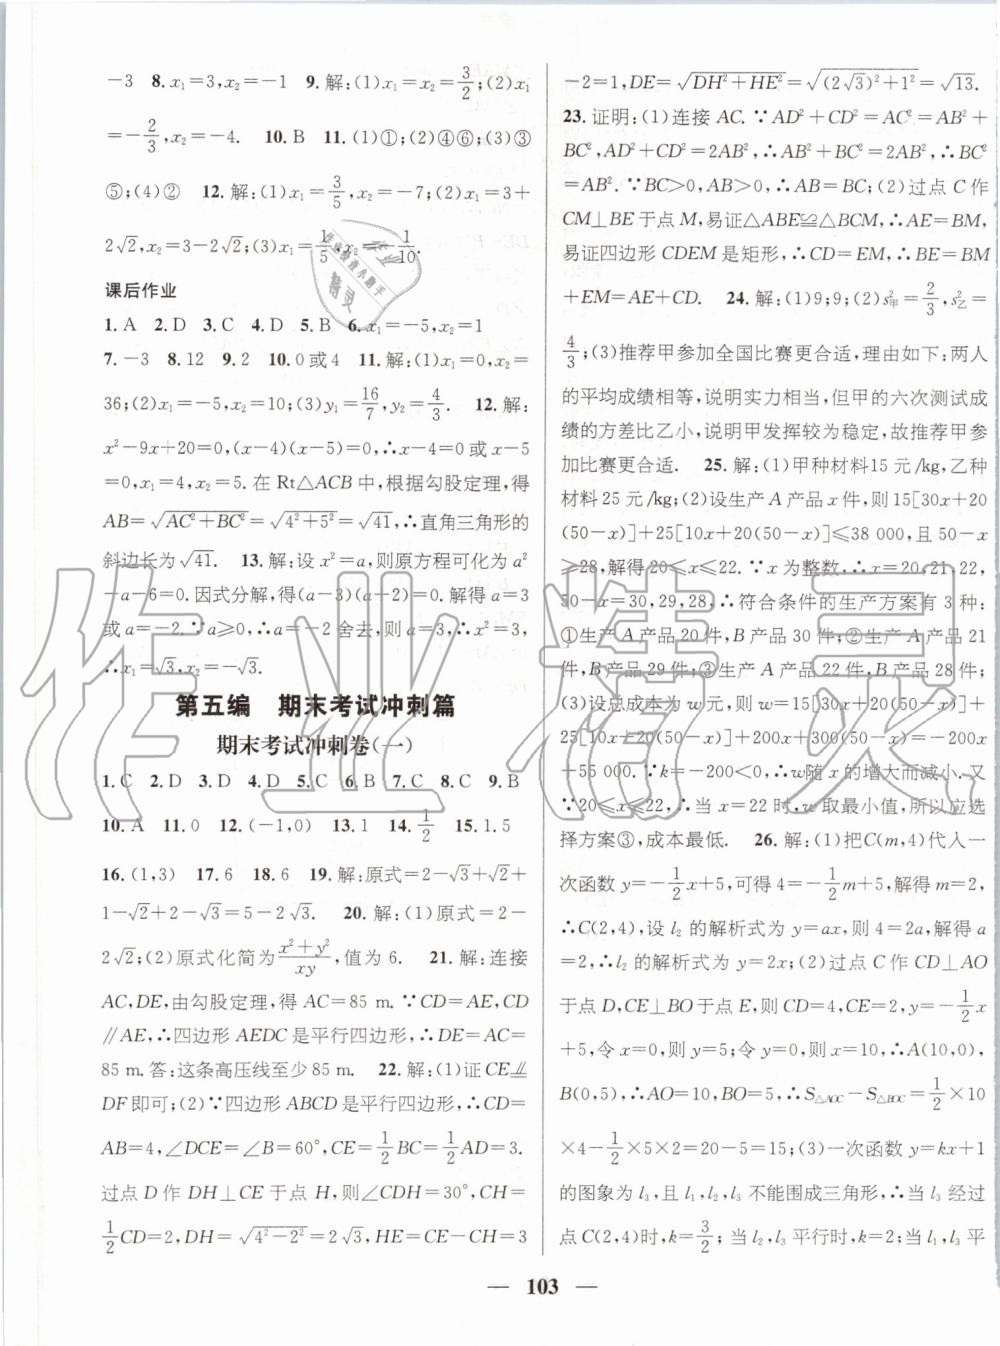 －3　8. x₁＝3，x₂＝－1　9. 解：(1)x₁＝x₂＝3/2；(2)x₁
＝－2/3，x₂＝－4.　10. B　11. (1)①；(2)④⑥；(3)③
⑤；(4)②　12. 解：(1)x₁＝3/5，x₂＝－7；(2)x₁＝3＋
2√2，x₂＝3－2√2；(3)x₁＝1/5，x₂＝－1/10.
课后作业
1. A　2. D　3. C　4. D　5. B　6. x₁＝－5，x₂＝1
7. －3　8. 12　9. 2　10. 0或4　11. 解：(1)x₁＝0，x₂＝
36；(2)x₁＝－5，x₂＝10；(3)y₁＝16/7，y₂＝4/3.　12. 解：
x²－9x＋20＝0，(x－4)(x－5)＝0，∴x－4＝0或x－5
＝0，x₁＝4，x₂＝5. 在 Rt△ACB 中，根据勾股定理，得
AB＝√(AC²＋BC²)＝√(4²＋5²)＝√41，∴直角三角形的
斜边长为√41.　13. 解：设 x²＝a，则原方程可化为 a²
－a－6＝0. 因式分解，得(a－3)(a＋2)＝0. 解得 a＝3
或 a＝－2. ∵a≥0，∴a＝－2 舍去，则 a＝3，∴x²＝3，
∴x₁＝√3，x₂＝－√3.
第五编　期末考试冲刺篇
期末考试冲刺卷(一)
1. C　2. D　3. D　4. D　5. C　6. B　7. C　8. C　9. B
10. A　11. 0　12. (－1,0)　13. 1　14. 1/2　15. 1.5
16. (1,3)　17. 6　18. 6　19. 解：原式＝2－√3＋√2＋
1－√2＋2－√3＝5－2√3.　20. 解：(1)原式＝2－
2√2；(2)原式化简为(x²＋y²)/xy，值为 6.　21. 解：连接
AC，DE，由勾股定理，得 AC＝85 m. ∵CD＝AE，CD
∥AE，∴四边形 AEDC 是平行四边形，∴DE＝AC＝
85 m. 答：这条高压线至少 85 m.　22. 解：(1)证 CE⫽
DF 即可；(2)∵四边形 ABCD 是平行四边形，∴CD＝
AB＝4，∠DCE＝∠B＝60°，CE＝1/2BC＝1/2AD＝3.
过点 D 作 DH⊥CE 于点 H，则∠CDH＝30°，CH＝
1/2CD＝2，DH＝√(4²－2²)＝2√3，HE＝CE－CH＝3
－2＝1，DE＝√(DH²＋HE²)＝√((2√3)²＋1²)＝√13.
23. 证明：(1)连接 AC. ∵AD²＋CD²＝AC²＝AB²＋
BC²，AD²＋CD²＝2AB²，∴AB²＋BC²＝2AB²，∴BC²
＝AB². ∵BC＞0，AB＞0，∴AB＝BC；(2)过点 C 作
CM⊥BE 于点 M，易证△ABE≌△BCM，∴AE＝BM，
易证四边形 CDEM 是矩形，∴CD＝EM，∴BE＝BM
＋EM＝AE＋CD.　24. 解：(1)9；9；(2)s²甲＝2/3，s²乙＝
4/3；(3)推荐甲参加全国比赛更合适，理由如下：两人
的平均成绩相等，说明实力相当，但甲的六次测试成
绩的方差比乙小，说明甲发挥较为稳定，故推荐甲参
加比赛更合适.　25. 解：(1)甲种材料15 元/kg，乙种
材料 25 元/kg；(2)设生产 A 产品 x 件，则 15[30x＋20
(50－x)]＋25[10x＋20(50－x)]≤38 000，且 50－x
≥28，解得 20≤x≤22. ∵x 为整数，∴x＝20，21，22，
50－x＝30，29，28，∴符合条件的生产方案有 3 种：
①生产 A 产品 20 件，B 产品 30 件；②生产 A 产品 21
件，B 产品 29 件；③生产 A 产品 22 件，B 产品 28 件；
(3)设总成本为 w 元，则 w＝15[30x＋20(50－x)]＋
25[10x＋20(50－x)]＋200x＋300(50－x)＝－200x
＋55 000. ∵k＝－200＜0，∴w 随 x 的增大而减小. 又
∵20≤x≤22，∴当 x＝22 时，w 取最小值，所以应选
择方案③，成本最低.　26. 解：(1)把C(m,4)代入一
次函数 y＝－1/2x＋5，可得 4＝－1/2m＋5，解得 m＝2，
∴C(2,4)，设 l₂ 的解析式为 y＝ax，则 4＝2a，解得 a
＝2，∴l₂ 的解析式为 y＝2x；(2)过点 C 作 CD⊥AO
于点 D，CE⊥BO 于点 E，则 CD＝4，CE＝2，y＝－1/2x
＋5，令 x＝0，则 y＝5，令 y＝0，则 x＝10，∴A(10,0)，
B(0,5)，∴AO＝10，BO＝5，∴S△AOC－S△BOC＝1/2×10
×4－1/2×5×2＝20－5＝15；(3)一次函数 y＝kx＋1
的图象为 l₃，且 l₁，l₂，l₃ 不能围成三角形，∴当 l₃ 经过
点 C(2,4)时，k＝3/2；当 l₂，l₃ 平行时，k＝2；当 l₁，l₃ 平
— 103 —
作业精灵